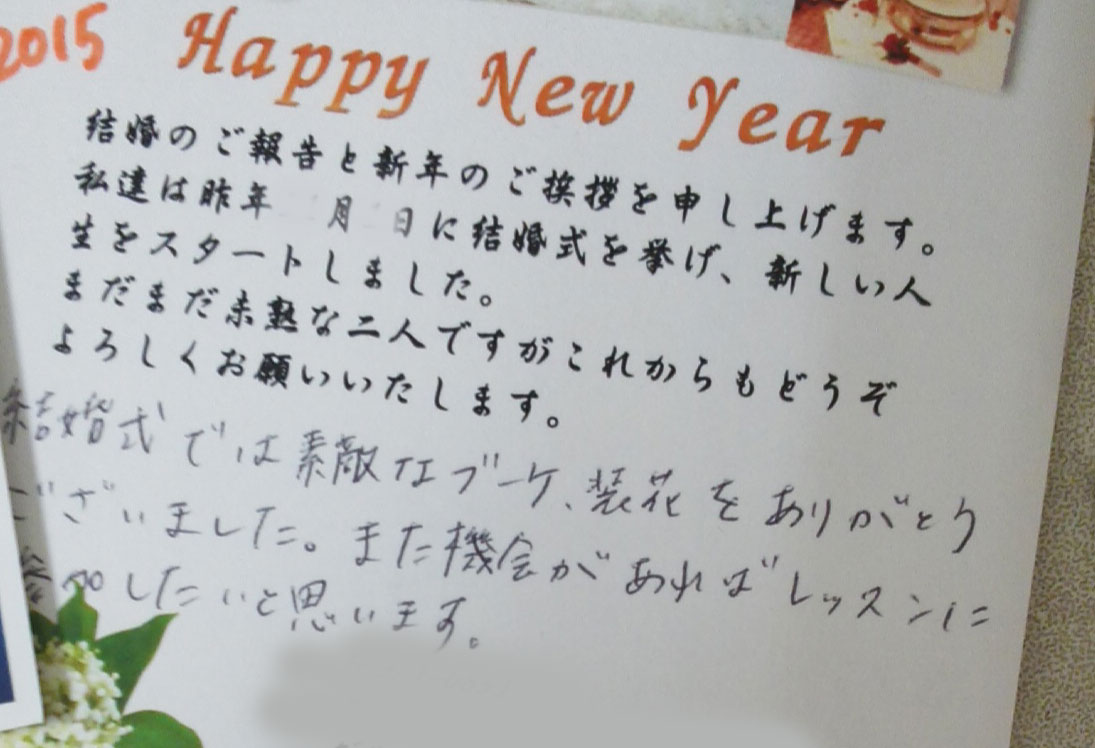 2015 Happy New Year
結婚のご報告と新年のご挨拶を申し上げます。
私達は昨年 月 日に結婚式を挙げ、新しい人
生をスタートしました。
まだまだ未熟な二人ですがこれからもどうぞ
よろしくお願いいたします。
結婚式では素敵なブーケ、装花をありがとう
ございました。また機会があればレッスンに
参加したいと思います。